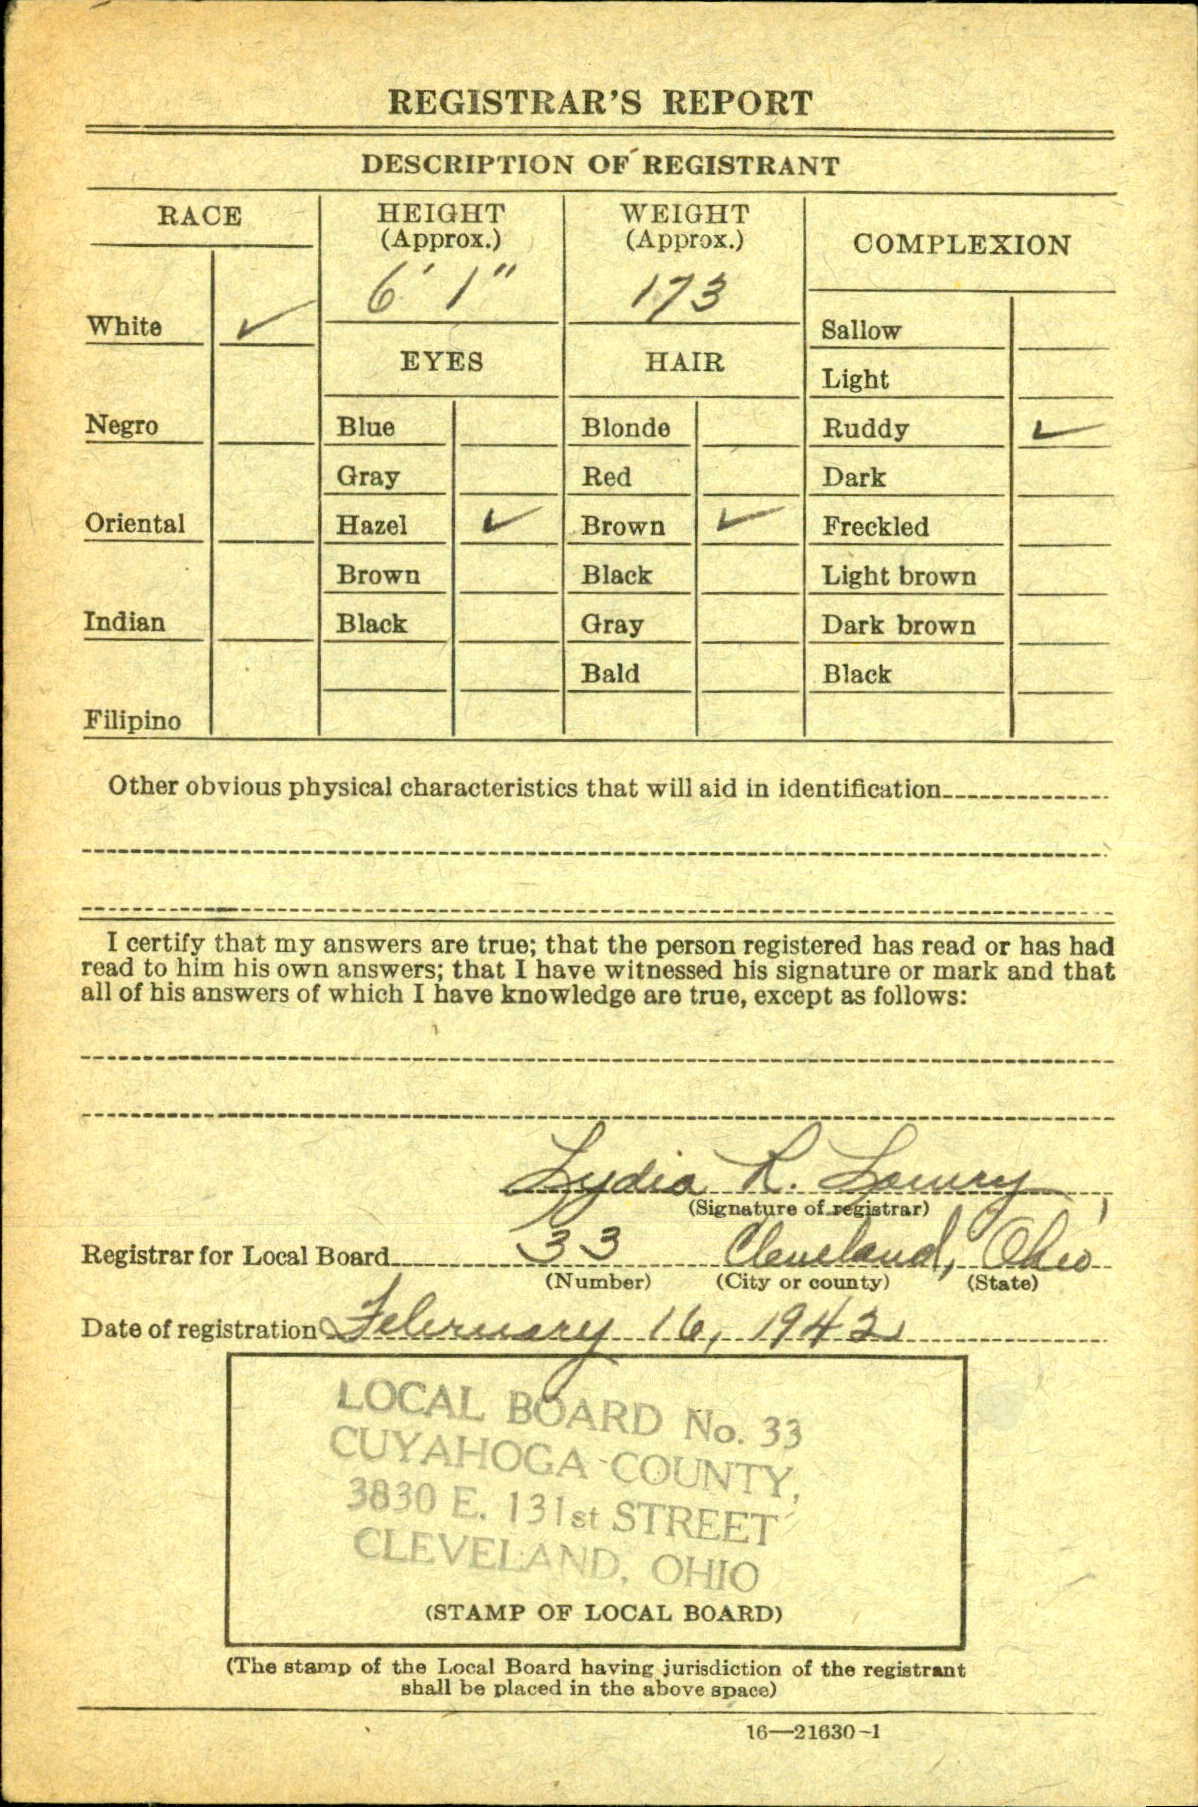 REGISTRAR'S REPORT
DESCRIPTION OF REGISTRANT
RACE
HEIGHT
(Approx.)
6' 1"
WEIGHT
(Approx.)
173
COMPLEXION
White ✓
Negro
Oriental
Indian
Filipino
EYES
Blue
Gray
Hazel ✓
Brown
Black
HAIR
Blonde
Red
Brown ✓
Black
Gray
Bald
Sallow
Light
Ruddy ✓
Dark
Freckled
Light brown
Dark brown
Black
Other obvious physical characteristics that will aid in identification
I certify that my answers are true; that the person registered has read or has had
read to him his own answers; that I have witnessed his signature or mark and that
all of his answers of which I have knowledge are true, except as follows:
Lydia R. Lowry
(Signature of registrar)
Registrar for Local Board 33 Cleveland, Ohio
(Number) (City or county) (State)
Date of registration February 16, 1942
LOCAL BOARD No. 33
CUYAHOGA COUNTY,
3830 E. 131st STREET
CLEVELAND, OHIO
(STAMP OF LOCAL BOARD)
(The stamp of the Local Board having jurisdiction of the registrant
shall be placed in the above space)
16—21630-1